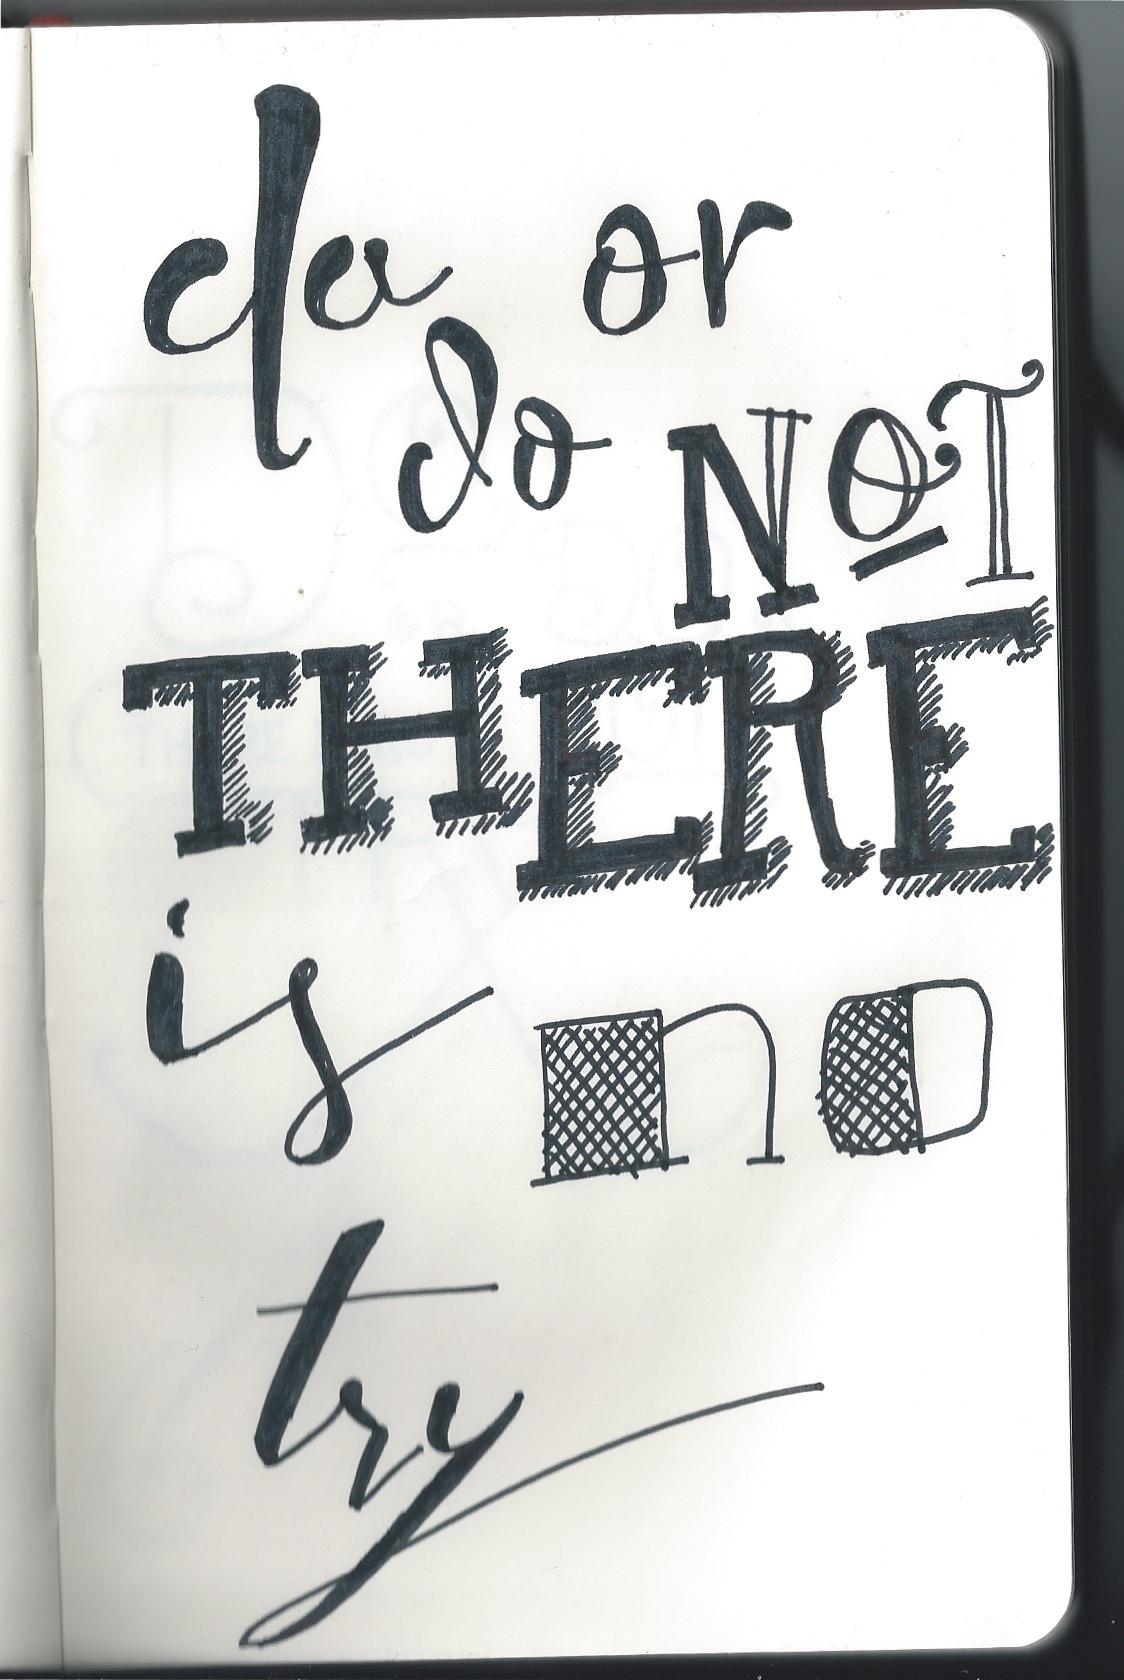 do or
do NOT
THERE
is no
try